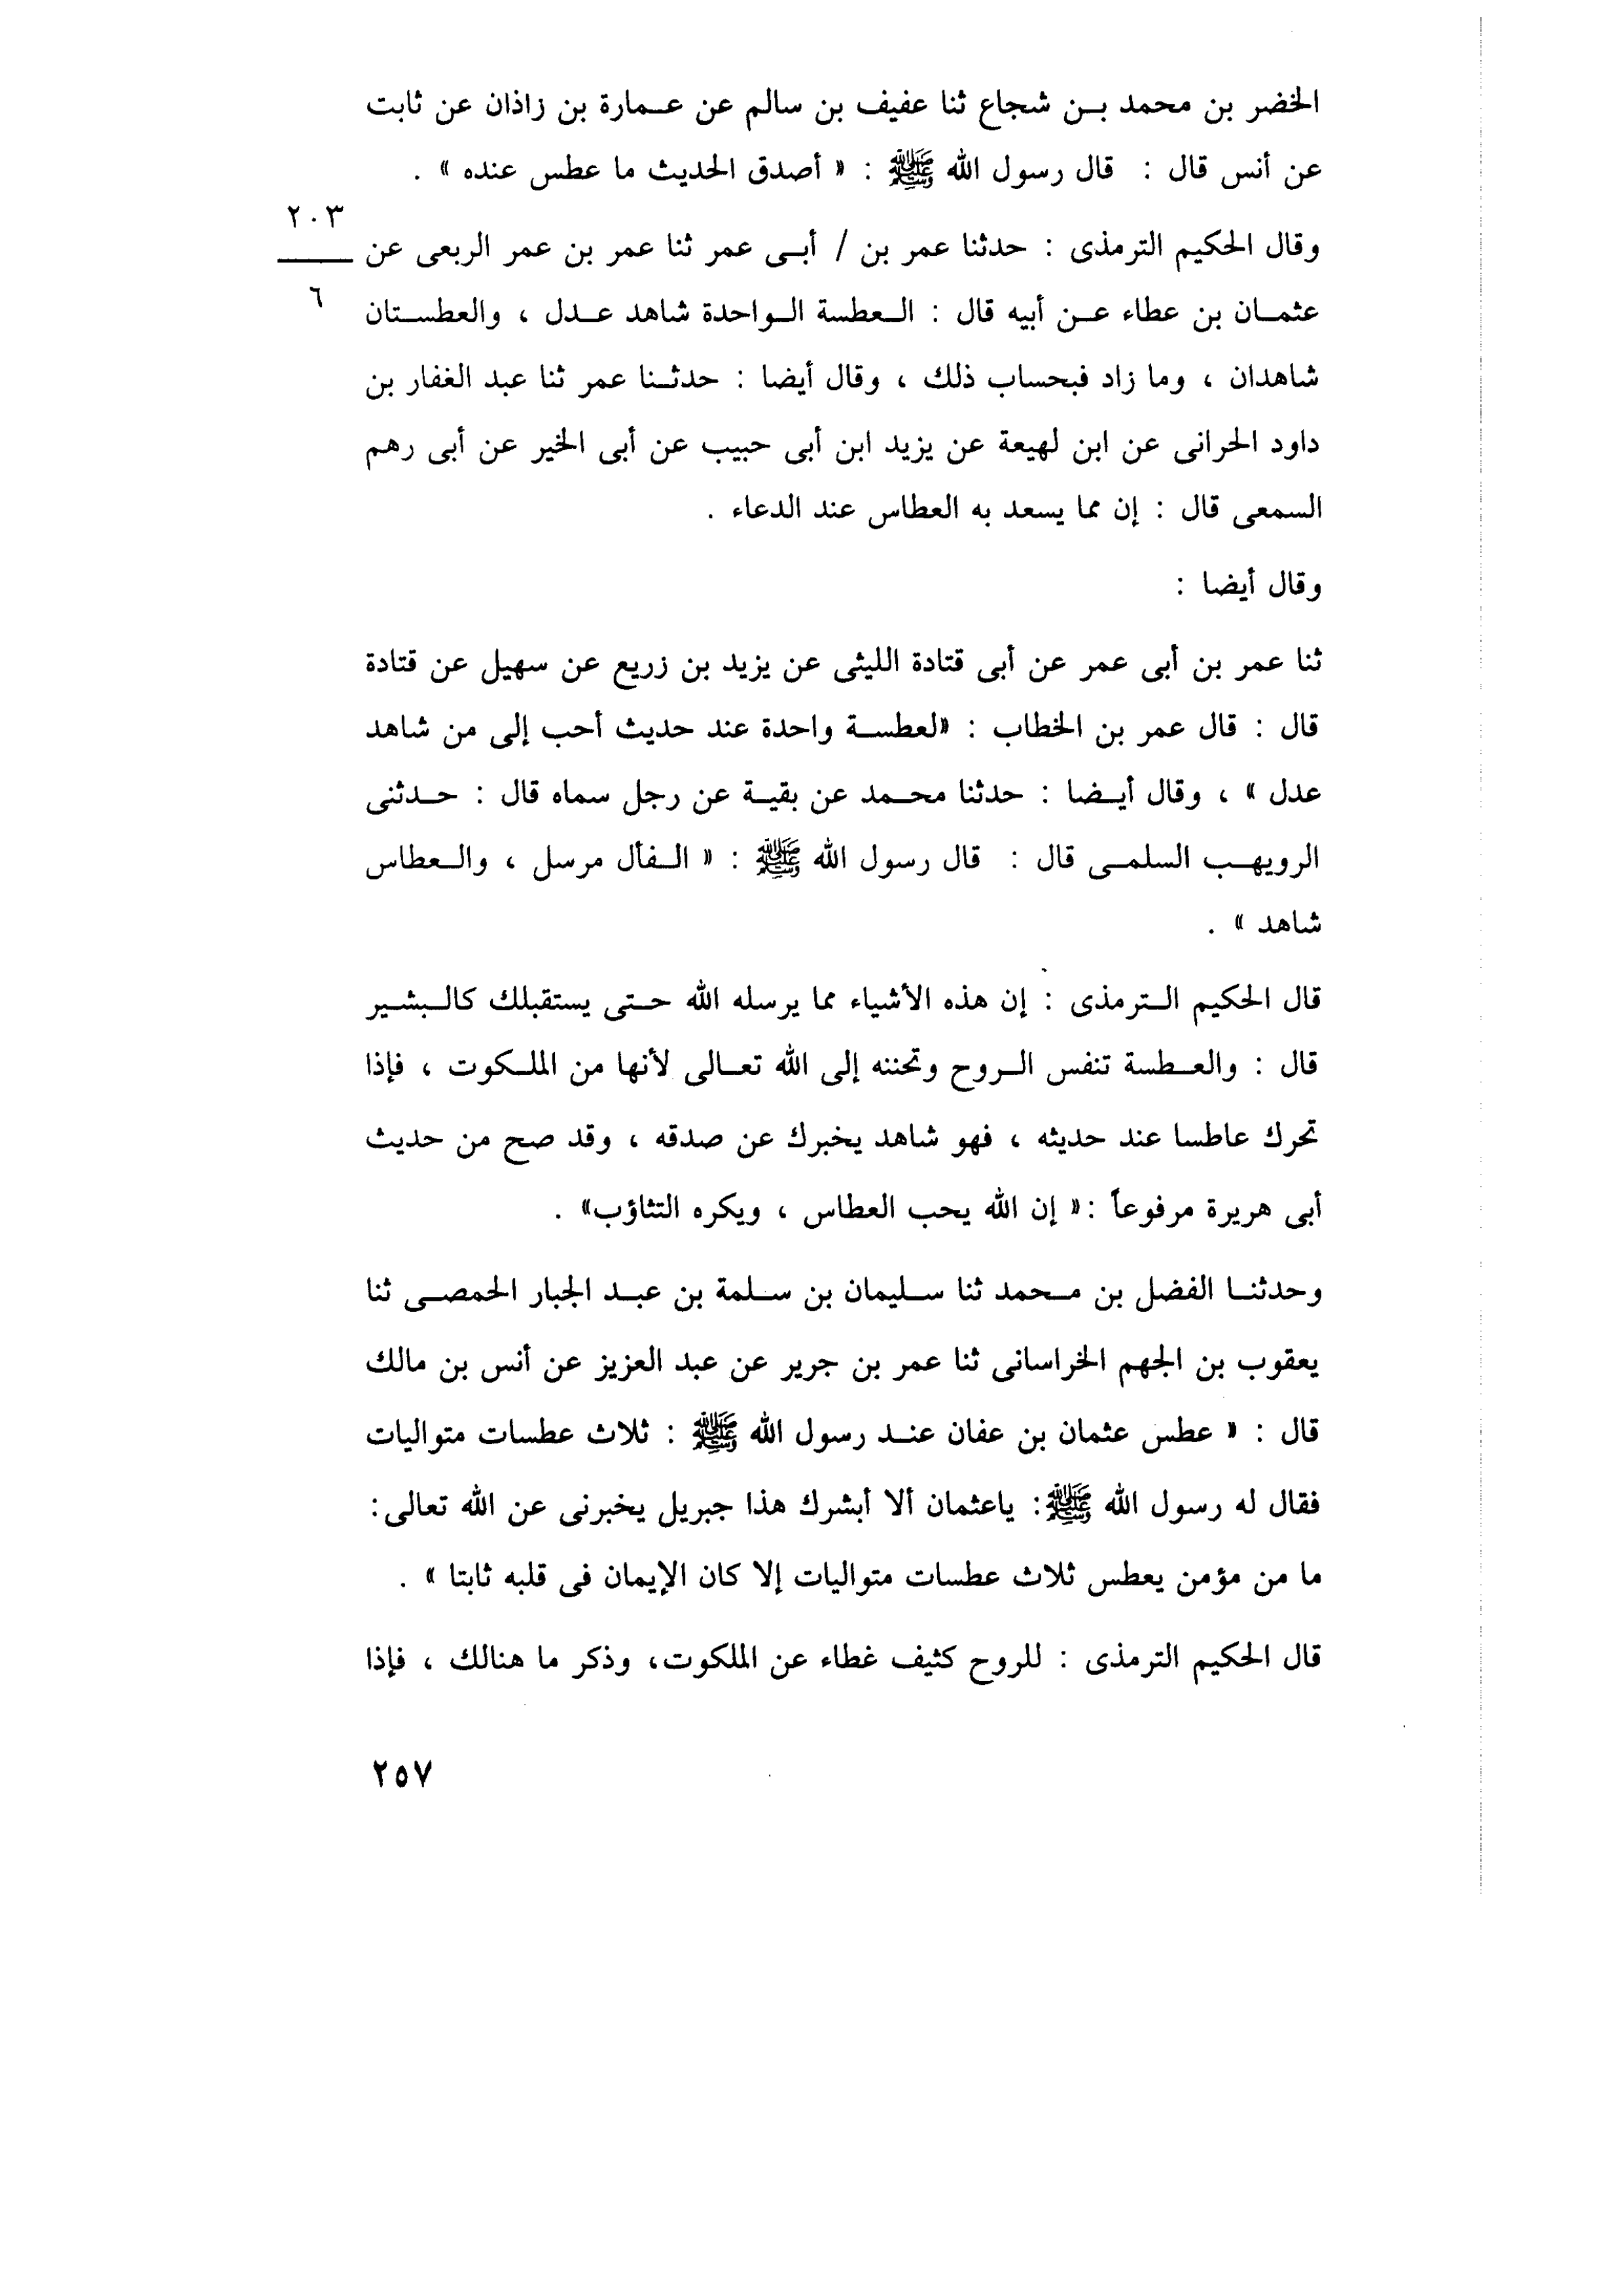 الخضر بن محمد بن شجاع ثنا عفيف بن سالم عن عمارة بن زاذان عن ثابت
عن أنس قال : قال رسول الله ﷺ : « أصدق الحديث ما عطس عنده » .
٢٠٣
وقال الحكيم الترمذى : حدثنا عمر بن / أبى عمر ثنا عمر بن عمر الربعى عن
٦
عثمان بن عطاء عن أبيه قال : العطسة الواحدة شاهد عدل ، والعطستان
شاهدان ، وما زاد فبحساب ذلك ، وقال أيضا : حدثنا عمر ثنا عبد الغفار بن
داود الحرانى عن ابن لهيعة عن يزيد ابن أبى حبيب عن أبى الخير عن أبى رهم
السمعى قال : إن مما يسعد به العطاس عند الدعاء .
وقال أيضا :
ثنا عمر بن أبى عمر عن أبى قتادة الليثى عن يزيد بن زريع عن سهيل عن قتادة
قال : قال عمر بن الخطاب : «لعطسة واحدة عند حديث أحب إلى من شاهد
عدل » ، وقال أيضا : حدثنا محمد عن بقية عن رجل سماه قال : حدثنى
الرويهب السلمى قال : قال رسول الله ﷺ : « الفأل مرسل ، والعطاس
شاهد » .
قال الحكيم الترمذى : إن هذه الأشياء مما يرسله الله حتى يستقبلك كالبشير
قال : والعطسة تنفس الروح وتحننه إلى الله تعالى لأنها من الملكوت ، فإذا
تحرك عاطسا عند حديثه ، فهو شاهد يخبرك عن صدقه ، وقد صح من حديث
أبى هريرة مرفوعاً :« إن الله يحب العطاس ، ويكره التثاؤب» .
وحدثنا الفضل بن محمد ثنا سليمان بن سلمة بن عبد الجبار الحمصى ثنا
يعقوب بن الجهم الخراسانى ثنا عمر بن جرير عن عبد العزيز عن أنس بن مالك
قال : « عطس عثمان بن عفان عند رسول الله ﷺ : ثلاث عطسات متواليات
فقال له رسول الله ﷺ: ياعثمان ألا أبشرك هذا جبريل يخبرنى عن الله تعالى:
ما من مؤمن يعطس ثلاث عطسات متواليات إلا كان الإيمان فى قلبه ثابتا » .
قال الحكيم الترمذى : للروح كثيف غطاء عن الملكوت، وذكر ما هنالك ، فإذا
٢٥٧